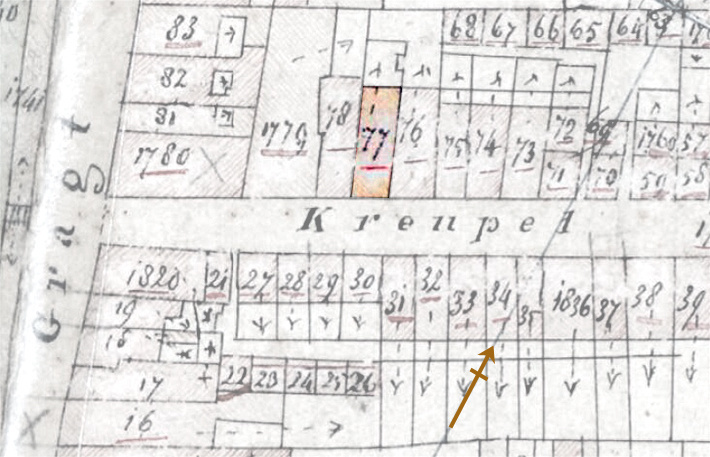 83
68 67 66 65 64
82
81
78 77 76 75 74 73 72
1779
1780
71 70
1760 57
59 58
Gragt
Krenpel
1820 21 27 28 29 30
31 32 33 34 35 1836 37 38 39
19
18
17
22 23 24 25 26
16